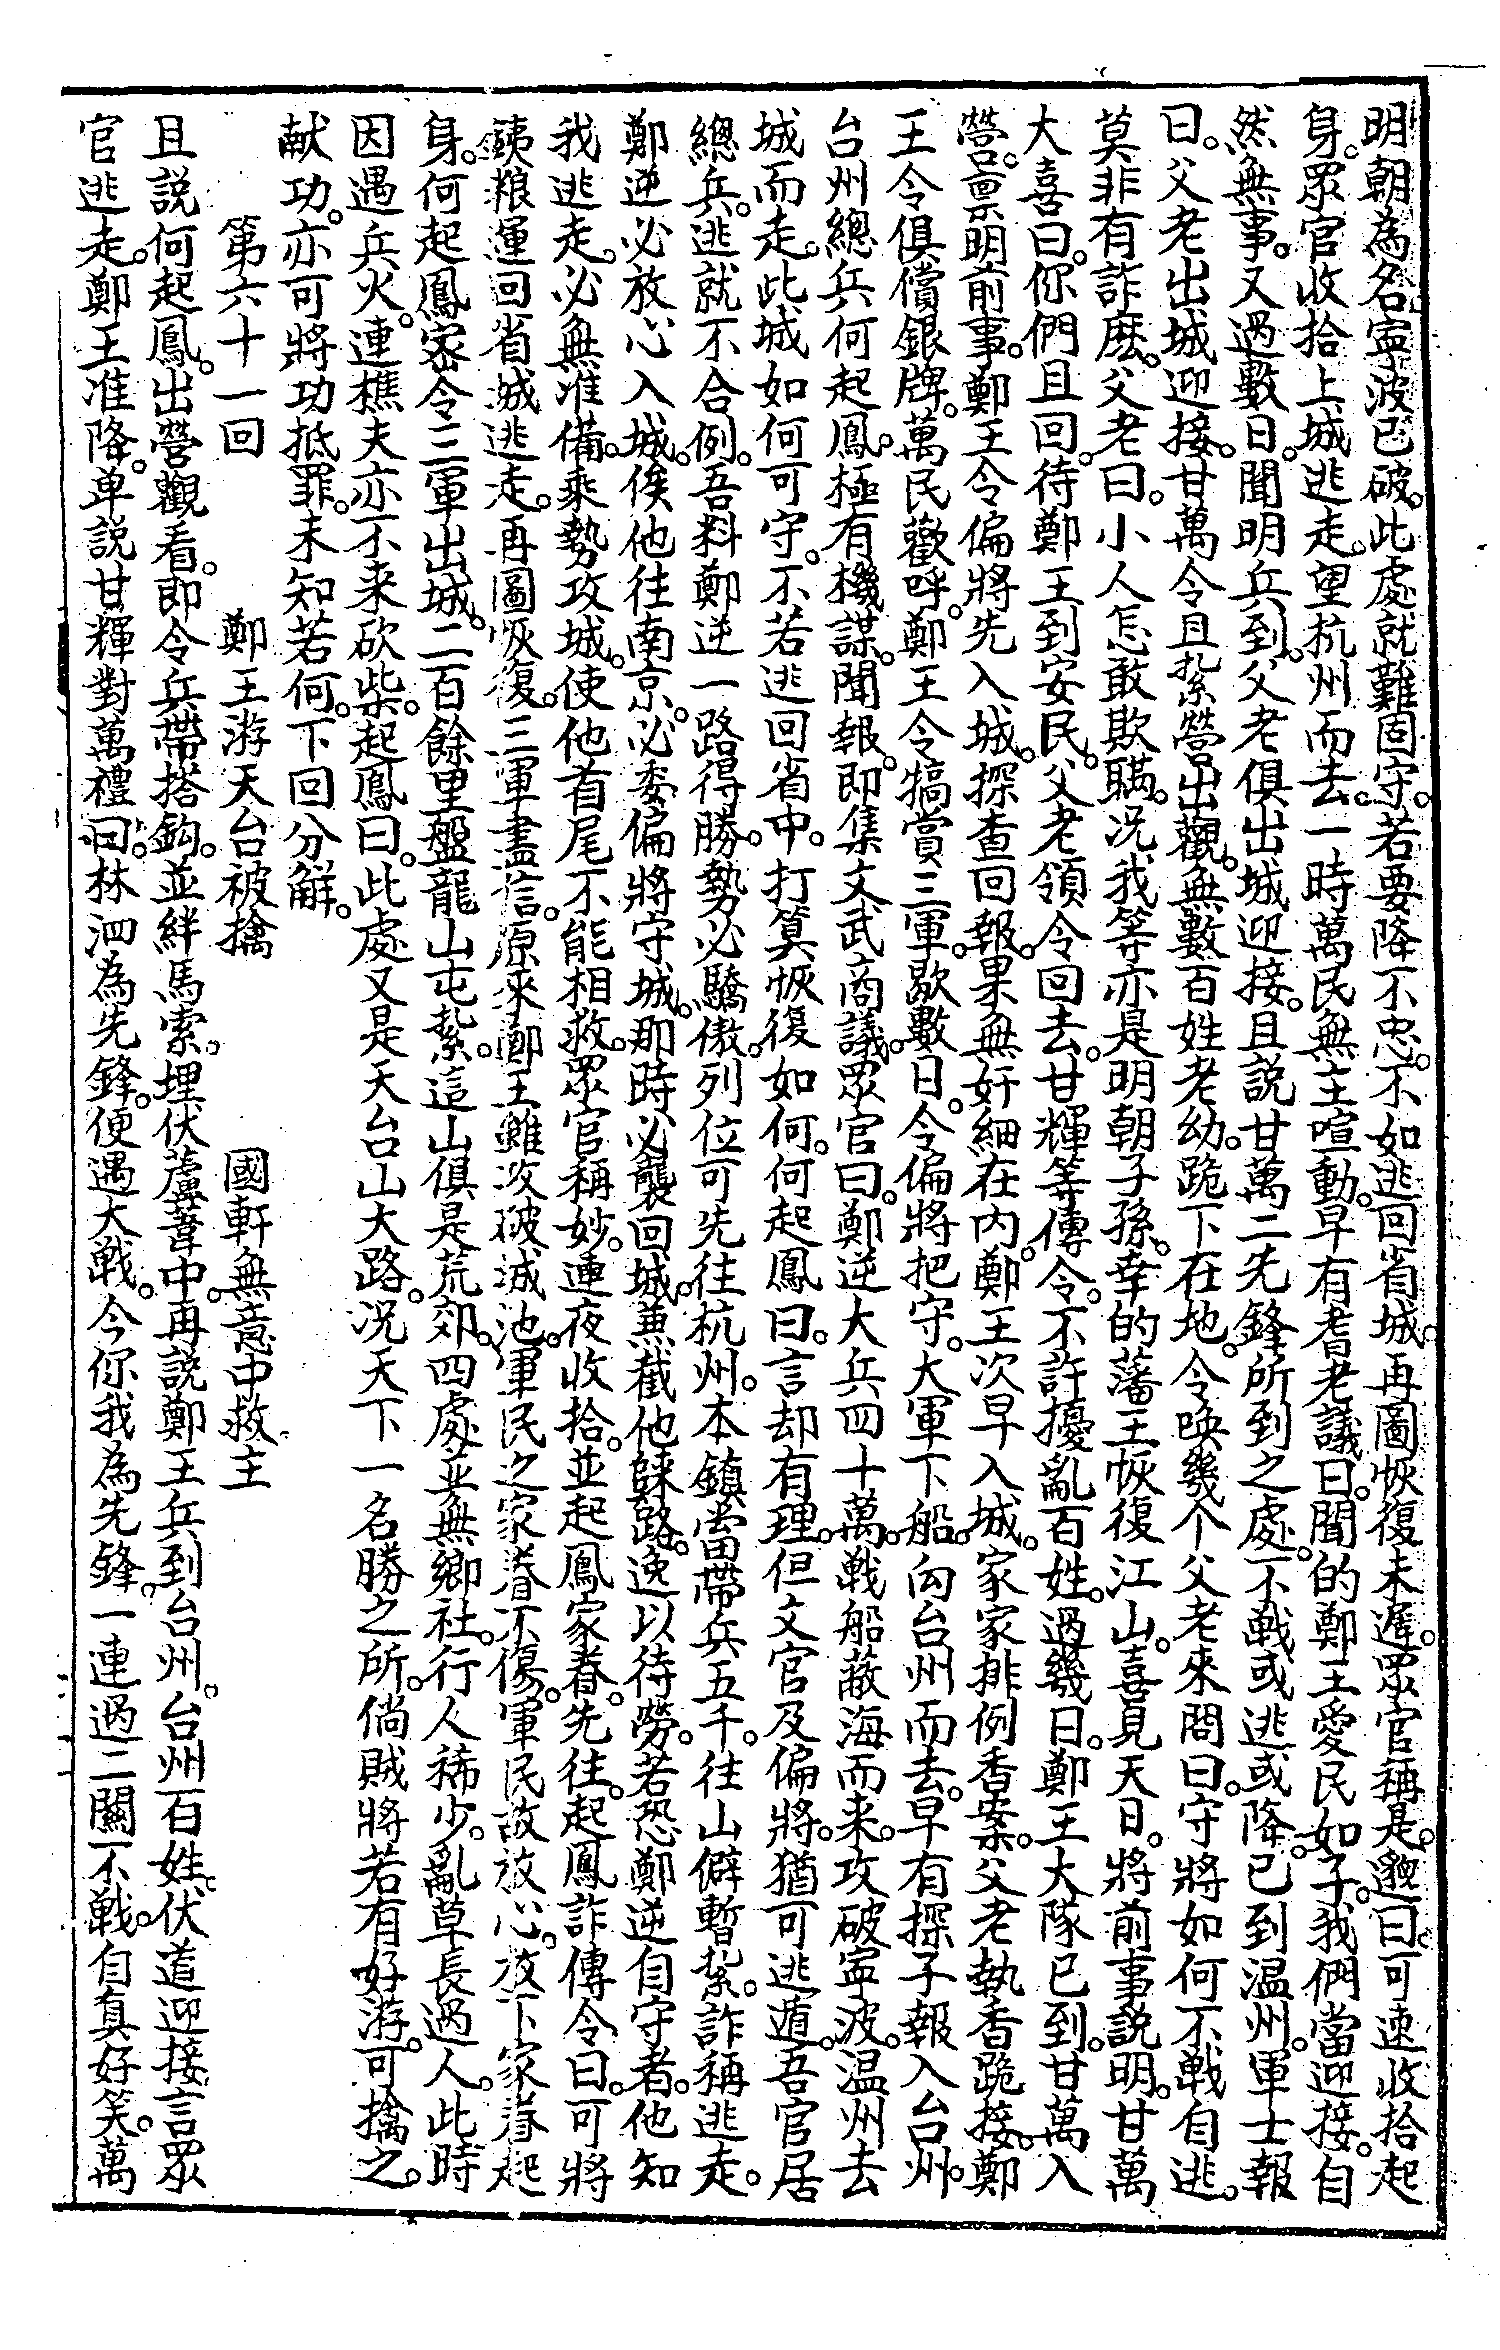 明朝為名寧波已破。此處就難固守。若要降不忠。不如逃回省城。再圖恢復未遲。眾官稱是。邈曰。可速收拾起
身。眾官收拾上城逃走。望杭州而去。一時萬民無主喧動。早有耆老議曰。聞的鄭王愛民如子。我們當迎接。自
然無事。又過數日。聞明兵到。父老俱出城迎接。且説甘萬二先鋒所到之處。不戰或逃或降。已到温州。軍士報
曰。父老出城迎接。甘萬令且紮營出觀。無數百姓老幼。跪下在地。令喚幾个父老來問曰。守將如何不戰自逃。
莫非有詐麽。父老曰。小人怎敢欺瞞。况我等亦是明朝子孫。幸的藩王恢復江山。喜見天日。將前事説明。甘萬
大喜曰。你們且回。待鄭王到安民。父老領令回去。甘輝等傳令。不許擾亂百姓。過幾日。鄭王大隊已到。甘萬入
營。禀明前事。鄭王令偏將先入城。探查回報。果無奸細在内。鄭王次早入城。家家排例香案。父老執香跪接。鄭
王令俱償銀牌。萬民歡呼。鄭王令犒賞三軍。歇數日。令偏將把守。大軍下船。向台州而去。早有探子報入台州。
台州總兵何起鳳。極有機謀。聞報。即集文武商議。眾官曰。鄭逆大兵四十萬。戰船蔽海而来。攻破寧波。温州去
城而走。此城如何可守。不若逃回省中。打算恢復如何。何起鳳曰。言却有理。但文官及偏將。猶可逃遁。吾官居
總兵。逃就不合例。吾料鄭逆一路得勝。勢必驕傲。列位可先往杭州。本鎮當帶兵五千。往山僻暫紮。詐稱逃走。
鄭逆必放心入城。俟他往南京。必委偏將守城。那時必襲回城。兼截他歸路。逸以待勞。若恐鄭逆自守者。他知
我逃走。必無准備。乘勢攻城。使他首尾不能相救。眾官稱妙。連夜收拾。並起鳳家眷。先往。起鳳詐傳令曰。可將
錢粮運回省城逃走。再圖恢復。三軍盡信。原來鄭王雖攻破城池。軍民之家眷不傷。軍民故放心。放下家眷起
身。何起鳳密令三軍出城。二百餘里盤龍山屯紮。這山俱是荒郊。四處並無鄉社。行人稀少。亂草長過人。此時
因遇兵火。連樵夫亦不来砍柴。起鳳曰。此處又是天台山大路。况天下一名勝之所。倘賊將若有好游。可擒之。
献功。亦可將功抵罪。未知若何。下回分解。
第六十一回　鄭王游天台被擒　國軒無意中救主
且説何起鳳。出營觀看。即令兵帶搭鈎。並絆馬索。埋伏蘆葦中。再説鄭王兵到台州。台州百姓。伏道迎接。言眾
官逃走。鄭王准降。单説甘輝對萬禮曰。林泗為先鋒。便遇大戰。今你我為先鋒。一連過二關不戰。自真好笑。萬